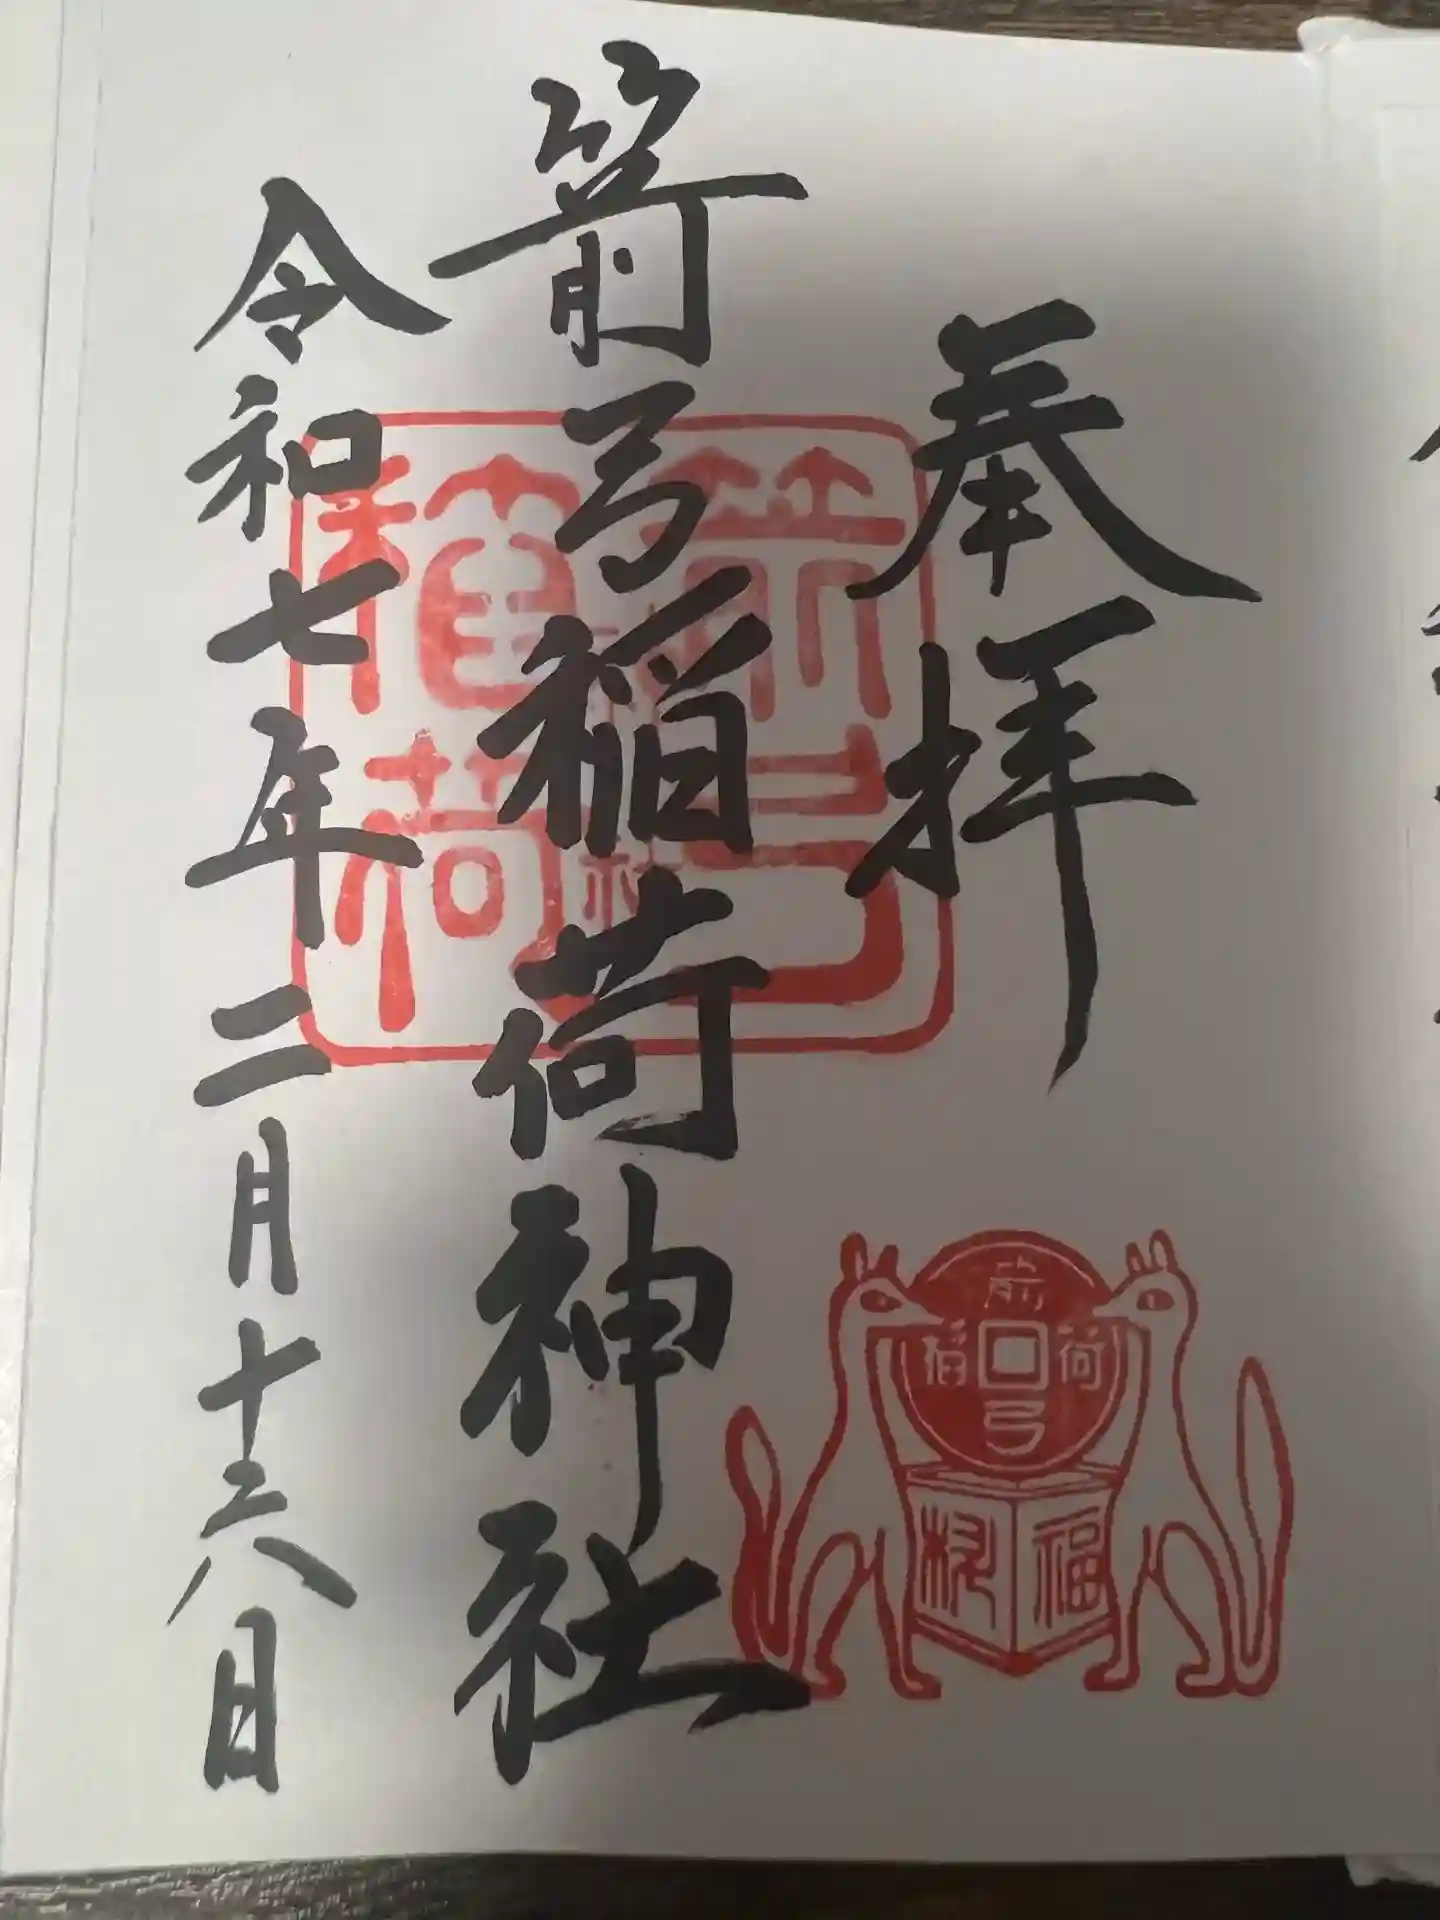 奉拝
箭弓稲荷神社
令和七年二月十六日
箭弓
稲荷
箭弓
稲荷
福